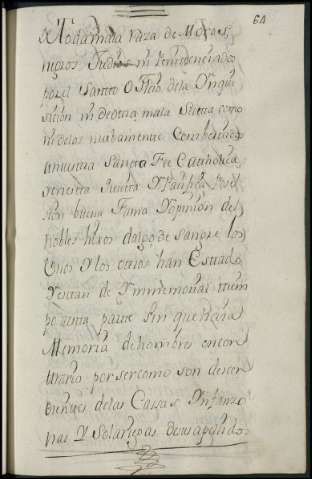 64
de toda mala raza de Moros,
negros Judios ni Penitenciados
por el Santto Oficio dela Ynqui
sicion ni de otra mala Sectta, como
ni delos nuebamente Combertidos
a nuestra Santta Fee Catholica,
en cuia quietta Y Pacifica Posse
cion buena Fama Y opinion de
nobles hijos dalgo de Sangre los
Unos Y los otros han Estado
Y estan de Ymmemorial tiem
po a esta parte sin que haia
Memoria de hombres en con
trario por ser como son descen
dientes delas Cassas Ynfanzo
nas Y Solariegas de sus apellido